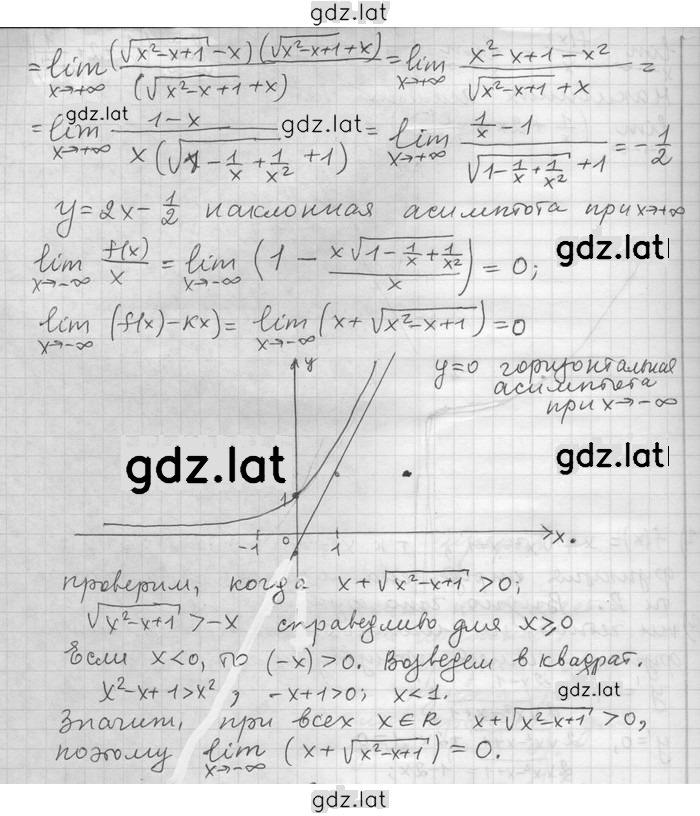 gdz.lat
= lim x→+∞ (√(x²-x+1) - x)(√(x²-x+1) + x) / (√(x²-x+1) + x) = lim x→+∞ (x²-x+1-x²) / (√(x²-x+1) + x) =
gdz.lat
= lim x→+∞ (1-x) / (x(√(1 - 1/x + 1/x²) + 1)) = lim x→+∞ (1/x - 1) / (√(1 - 1/x + 1/x²) + 1) = -1/2
gdz.lat
y=2x-1/2 наклонная асимптота при x→+∞
lim x→-∞ f(x)/x = lim x→-∞ (1 - x√(1 - 1/x + 1/x²) / x) = 0;
gdz.lat
lim x→-∞ (f(x)-кx) = lim x→-∞ (x+√(x²-x+1)) = 0
y=0 горизонтальная
асимптота
при x→-∞
y
gdz.lat
gdz.lat
1
-1 0 1 x
проверим, когда x+√(x²-x+1) >0;
√(x²-x+1) >-x справедливо для x⩾0
Если x<0, то (-x) >0. Возведем в квадрат.
x²-x+1>x²; -x+1>0; x<1.
gdz.lat
Значит, при всех x∈R x+√(x²-x+1) >0,
поэтому lim x→-∞ (x+√(x²-x+1)) = 0.
gdz.lat